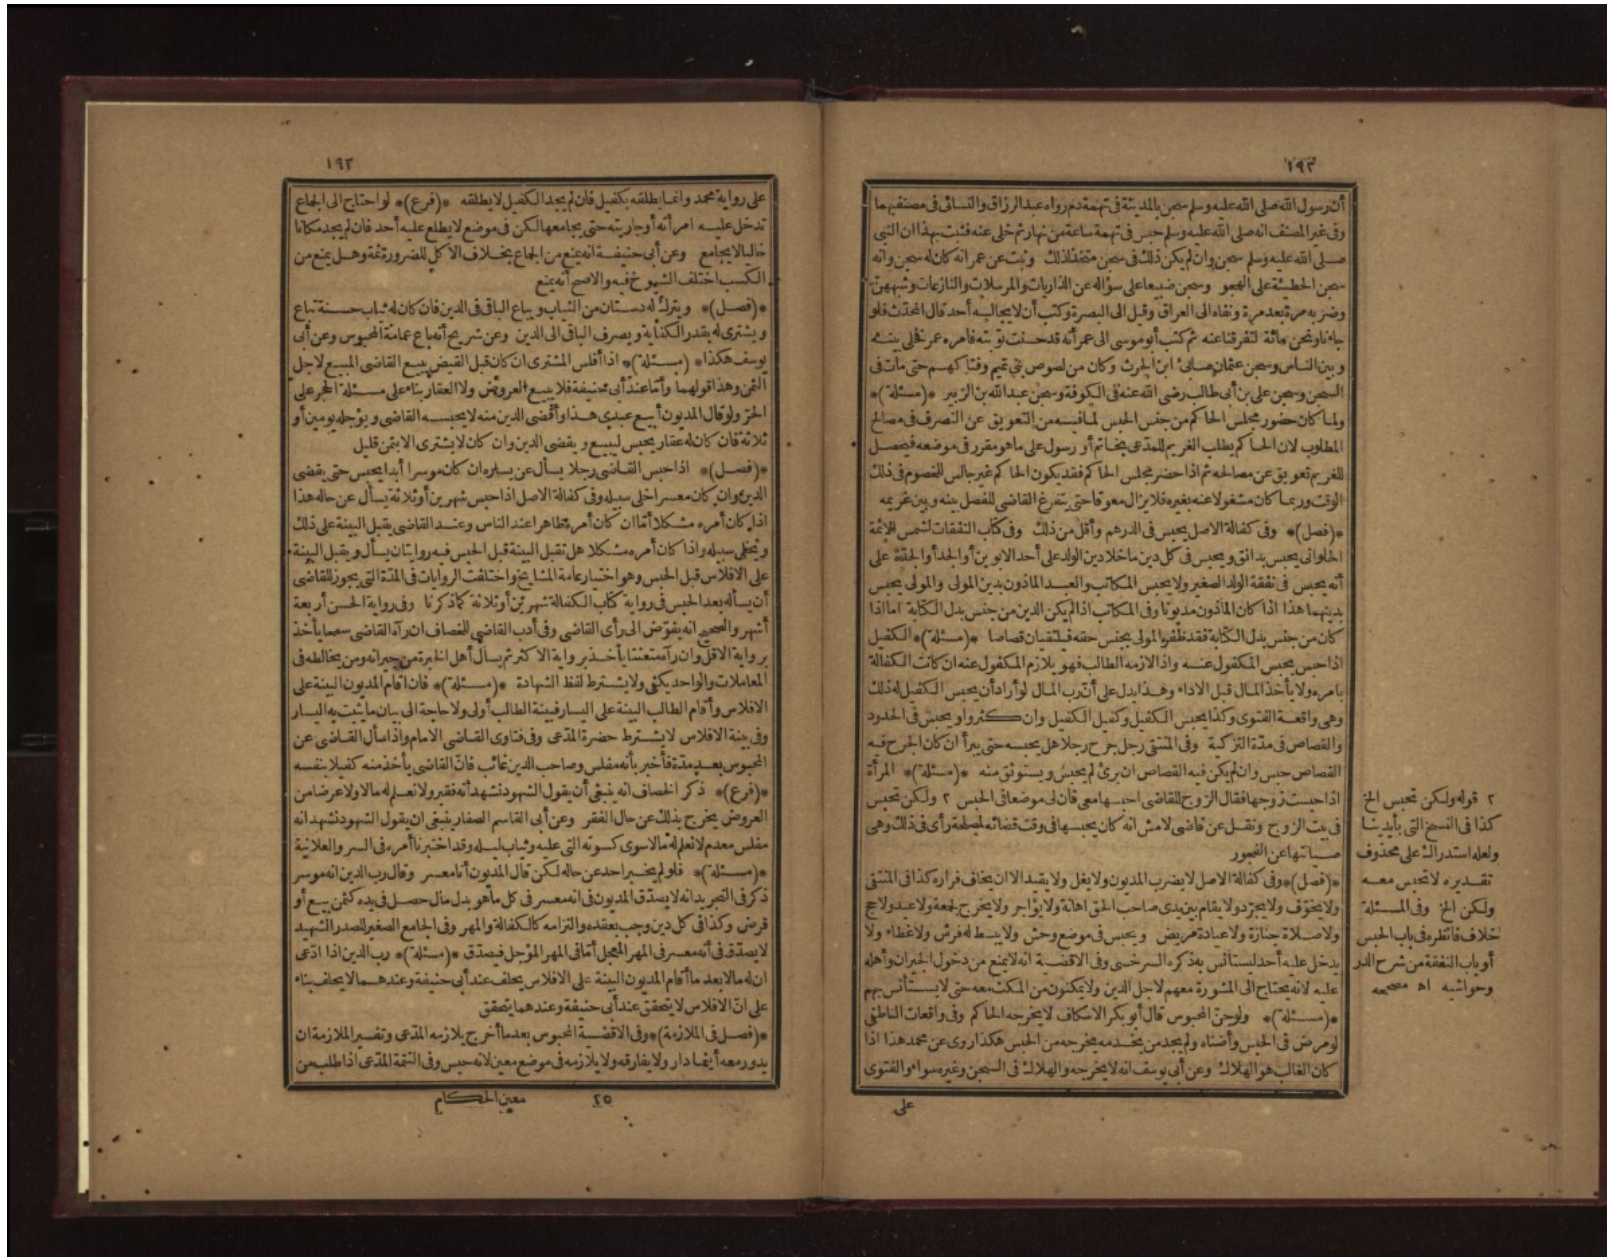 ١٩٢
أن رسول الله صلى الله عليه وسلم سجن بالمدينة فى تهمة دم رواه عبد الرزاق والنسائى فى مصنفيهما
وفى غير المصنف انه صلى الله عليه وسلم حبس فى تهمة ساعة من نهار ثم خلى عنه فثبت بهذا ان النبى
صلى الله عليه وسلم سجن وان لم يكن ذلك فى سجن متخذ لذلك وثبت عن عمر انه كان له سجن وانه
سجن الحطيئة على الهجو وسجن ضبيعا على سؤاله عن الذاريات والمرسلات والنازعات وشبههن
وضربه مرة بعد مرة ونفاه الى العراق وقيل الى البصرة وكتب أن لا يجالسه أحد قال المحدث فلو
جاءنا ونحن مائة لتفرقنا عنه ثم كتب أبو موسى الى عمر أنه قد حسنت توبته فأمره عمر فخلى بينه
وبين الناس وسجن عثمان صابئ ابن الحرث وكان من لصوص بنى تميم وفتاكهم حتى مات فى
السجن وسجن على بن أبى طالب رضى الله عنه فى الكوفة وسجن عبد الله بن الزبير *(مسئلة)*
ولما كان حضور مجلس الحاكم من جنس الحبس لما فيه من التعويق عن التصرف فى مصالح
المطلوب لان الحاكم يطلب الغريم للمدعى بخاتم أو رسول على ما هو مقرر فى موضعه فيحصل
للغريم تعويق عن مصالحه ثم اذا حضر مجلس الحاكم فقد يكون الحاكم غير جالس للخصوم فى ذلك
الوقت وربما كان مشغولا عنه بغيره فلا يزال معوقا حتى يتفرغ القاضى للفصل بينه وبين غريمه
*(فصل)* وفى كفالة الاصل يحبس فى الدرهم وأقل من ذلك وفى كتاب النفقات لشمس الائمة
الحلوانى يحبس بدانق ويحبس فى كل دين ما خلا دين الولد على أحد الابوين أو الجد أو الجدة على
أنه يحبس فى نفقة الولد الصغير ولا يحبس المكاتب والعبد المأذون بدين المولى والمولى يحبس
بدينهما هذا اذا كان المأذون مديونا وفى المكاتب اذا لم يكن الدين من جنس بدل الكتابة اما اذا
كان من جنس بدل الكتابة فقد ظفر المولى بجنس حقه فيلتقيان قصاصا *(مسئلة)* الكفيل
اذا حبس يحبس المكفول عنه واذا لازمه الطالب فهو يلازم المكفول عنه ان كانت الكفالة
بأمره ولا يأخذ المال قبل الاداء وهذا يدل على أن رب المال لو أراد أن يحبس الكفيل له ذلك
وهى واقعة الفتوى وكذا يحبس الكفيل وكفيل الكفيل وان كثروا ويحبس فى الحدود
والقصاص فى مدة التزكية وفى المنتقى رجل جرح رجلا هل يحبسه حتى يبرأ ان كان الجرح فيه
القصاص حبس وان لم يكن فيه القصاص ان برئ لم يحبس ويستوثق منه *(مسئلة)* المرأة
اذا حبست زوجها فقال الزوج للقاضى احبسها معى فان لى موضعا فى الحبس ٢ ولكن تحبس
فى بيت الزوج ونقل عن قاضى لامش انه كان يحبسها فى وقت قضائه لمصلحة رأى فى ذلك وهى
صيانتها عن الفجور
*(فصل)* وفى كفالة الاصل لا يضرب المديون ولا يغل ولا يقيد الا ان يخاف فراره كذا فى المنتقى
ولا يخوف ولا يجرد ولا يقام بين يدى صاحب الحق اهانة ولا يؤاجر ولا يخرج لجمعة ولا عيد ولا حج
ولا صلاة جنازة ولا عيادة مريض ويحبس فى موضع وحش ولا يبسط له فرش ولا غطاء ولا
يدخل عليه أحد ليستأنس به ذكره السرخسى وفى الاقضية انه لا يمنع من دخول الجيران وأهله
عليه لانه يحتاج الى المشورة معهم لاجل الدين ولا يمكنون من المكث معه حتى لا يستأنس بهم
*(مسئلة)* ولو جن المحبوس قال أبو بكر الاسكاف لا يخرجه الحاكم وفى واقعات الناطفى
لو مرض فى الحبس وأضناه ولم يجد من يخدمه يخرجه من الحبس هكذا روى عن محمد هذا اذا
كان الغالب هو الهلاك وعن أبى يوسف انه لا يخرجه والهلاك فى السجن وغيره سواء والفتوى
على
٢ قوله ولكن تحبس الخ
كذا فى النسخ التى بأيدينا
ولعله استدراك على محذوف
تقديره لا تحبس معه
ولكن الخ وفى المسئلة
خلاف فانظره فى باب الحبس
أو باب النفقة من شرح الدر
وحواشيه اه مصححه
١٩٣
على رواية محمد وانما يطلقه بكفيل فان لم يجد الكفيل لا يطلقه *(فرع)* لو احتاج الى الجماع
تدخل عليه امرأته أو جاريته حتى يجامعها لكن فى موضع لا يطلع عليه أحد فان لم يجد مكانا
خاليا لا يجامع وعن أبى حنيفة انه يمنع من الجماع بخلاف الاكل للضرورة ثمة وهل يمنع من
الكسب اختلف الشيوخ فيه والاصح أنه يمنع
*(فصل)* ويترك له دستان من الثياب ويباع الباقى فى الدين فان كان له ثياب حسنة تباع
ويشترى له بقدر الكفاية ويصرف الباقى الى الدين وعن شريح أنه باع عمامة المحبوس وعن أبى
يوسف هكذا *(مسئلة)* اذا أفلس المشترى ان كان قبل القبض يبيع القاضى المبيع لاجل
الثمن وهذا قولهما وأما عند أبى حنيفة فلا يبيع العروض ولا العقار بناء على مسئلة الحجر على
الحر ولو قال المديون أبيع عبدى هذا وأقضى الدين منه لا يحبسه القاضى ويؤجله يومين أو
ثلاثة فان كان له عقار يحبس ليبيع ويقضى الدين وان كان لا يشترى الا بثمن قليل
*(فصل)* اذا حبس القاضى رجلا يسأل عن يساره ان كان موسرا أبدا يحبس حتى يقضى
الدين وان كان معسرا خلى سبيله وفى كفالة الاصل اذا حبس شهرين أو ثلاثة يسأل عن حاله هذا
اذا كان أمره مشكلا أما ان كان أمره ظاهرا عند الناس وعند القاضى يقبل البينة على ذلك
ويخلى سبيله واذا كان أمره مشكلا هل تقبل البينة قبل الحبس فيه روايتان يسأل ويقبل البينة
على الافلاس قبل الحبس وهو اختيار عامة المشايخ واختلفت الروايات فى المدة التى يجوز للقاضى
أن يسأله بعد الحبس فى رواية كتاب الكفالة شهرين أو ثلاثة كما ذكرنا وفى رواية الحسن أربعة
أشهر والصحيح انه يفوض الى رأى القاضى وفى أدب القاضى للخصاف ان رآه القاضى سمعا يأخذ
برواية الاقل وان رآه متعنتا يأخذ برواية الاكثر ثم يسأل أهل الخبرة من جيرانه ومن يخالطه فى
المعاملات والواحد يكفى ولا يشترط لفظ الشهادة *(مسئلة)* فان أقام المديون البينة على
الافلاس وأقام الطالب البينة على اليسار فبينة الطالب أولى ولا حاجة الى بيان ما يثبت به اليسار
وفى بينة الافلاس لا يشترط حضرة المدعى وفى فتاوى القاضى الامام واذا سأل القاضى عن
المحبوس بعد مدة فأخبر بأنه مفلس وصاحب الدين غائب فان القاضى يأخذ منه كفيلا بنفسه
*(فرع)* ذكر الخصاف انه ينبغى أن يقول الشهود نشهد أنه فقير ولا نعلم له مالا ولا عرضا من
العروض يخرج بذلك عن حال الفقر وعن أبى القاسم الصفار ينبغى ان يقول الشهود نشهد انه
مفلس معدم لا نعلم له مالا سوى كسوته التى عليه وثياب ليله وقد اختبرنا أمره فى السر والعلانية
*(مسئلة)* فلو لم يخبر احد عن حاله لكن قال المديون أنا معسر وقال رب الدين انه موسر
ذكر فى التجريد انه لا يصدق المديون فى انه معسر فى كل ما هو بدل مال حصل فى يده كثمن بيع أو
قرض وكذا فى كل دين وجب بعقده والتزامه كالكفالة والمهر وفى الجامع الصغير للصدر الشهيد
لا يصدق فى أنه معسر فى المهر المعجل أما فى المهر المؤجل فيصدق *(مسئلة)* رب الدين اذا ادعى
ان له مالا بعد ما أقام المديون البينة على الافلاس يحلف عند أبى حنيفة وعندهما لا يحلف بناء
على ان الافلاس لا يتحقق عند أبى حنيفة وعندهما يتحقق
*(فصل فى الملازمة)* وفى الاقضية المحبوس بعد ما أخرج يلازمه المدعى وتفسير الملازمة ان
يدور معه أينما دار ولا يفارقه ولا يلازمه فى موضع معين لانه حبس وفى التتمة المدعى اذا طلب من
٢٥ معين الحكام